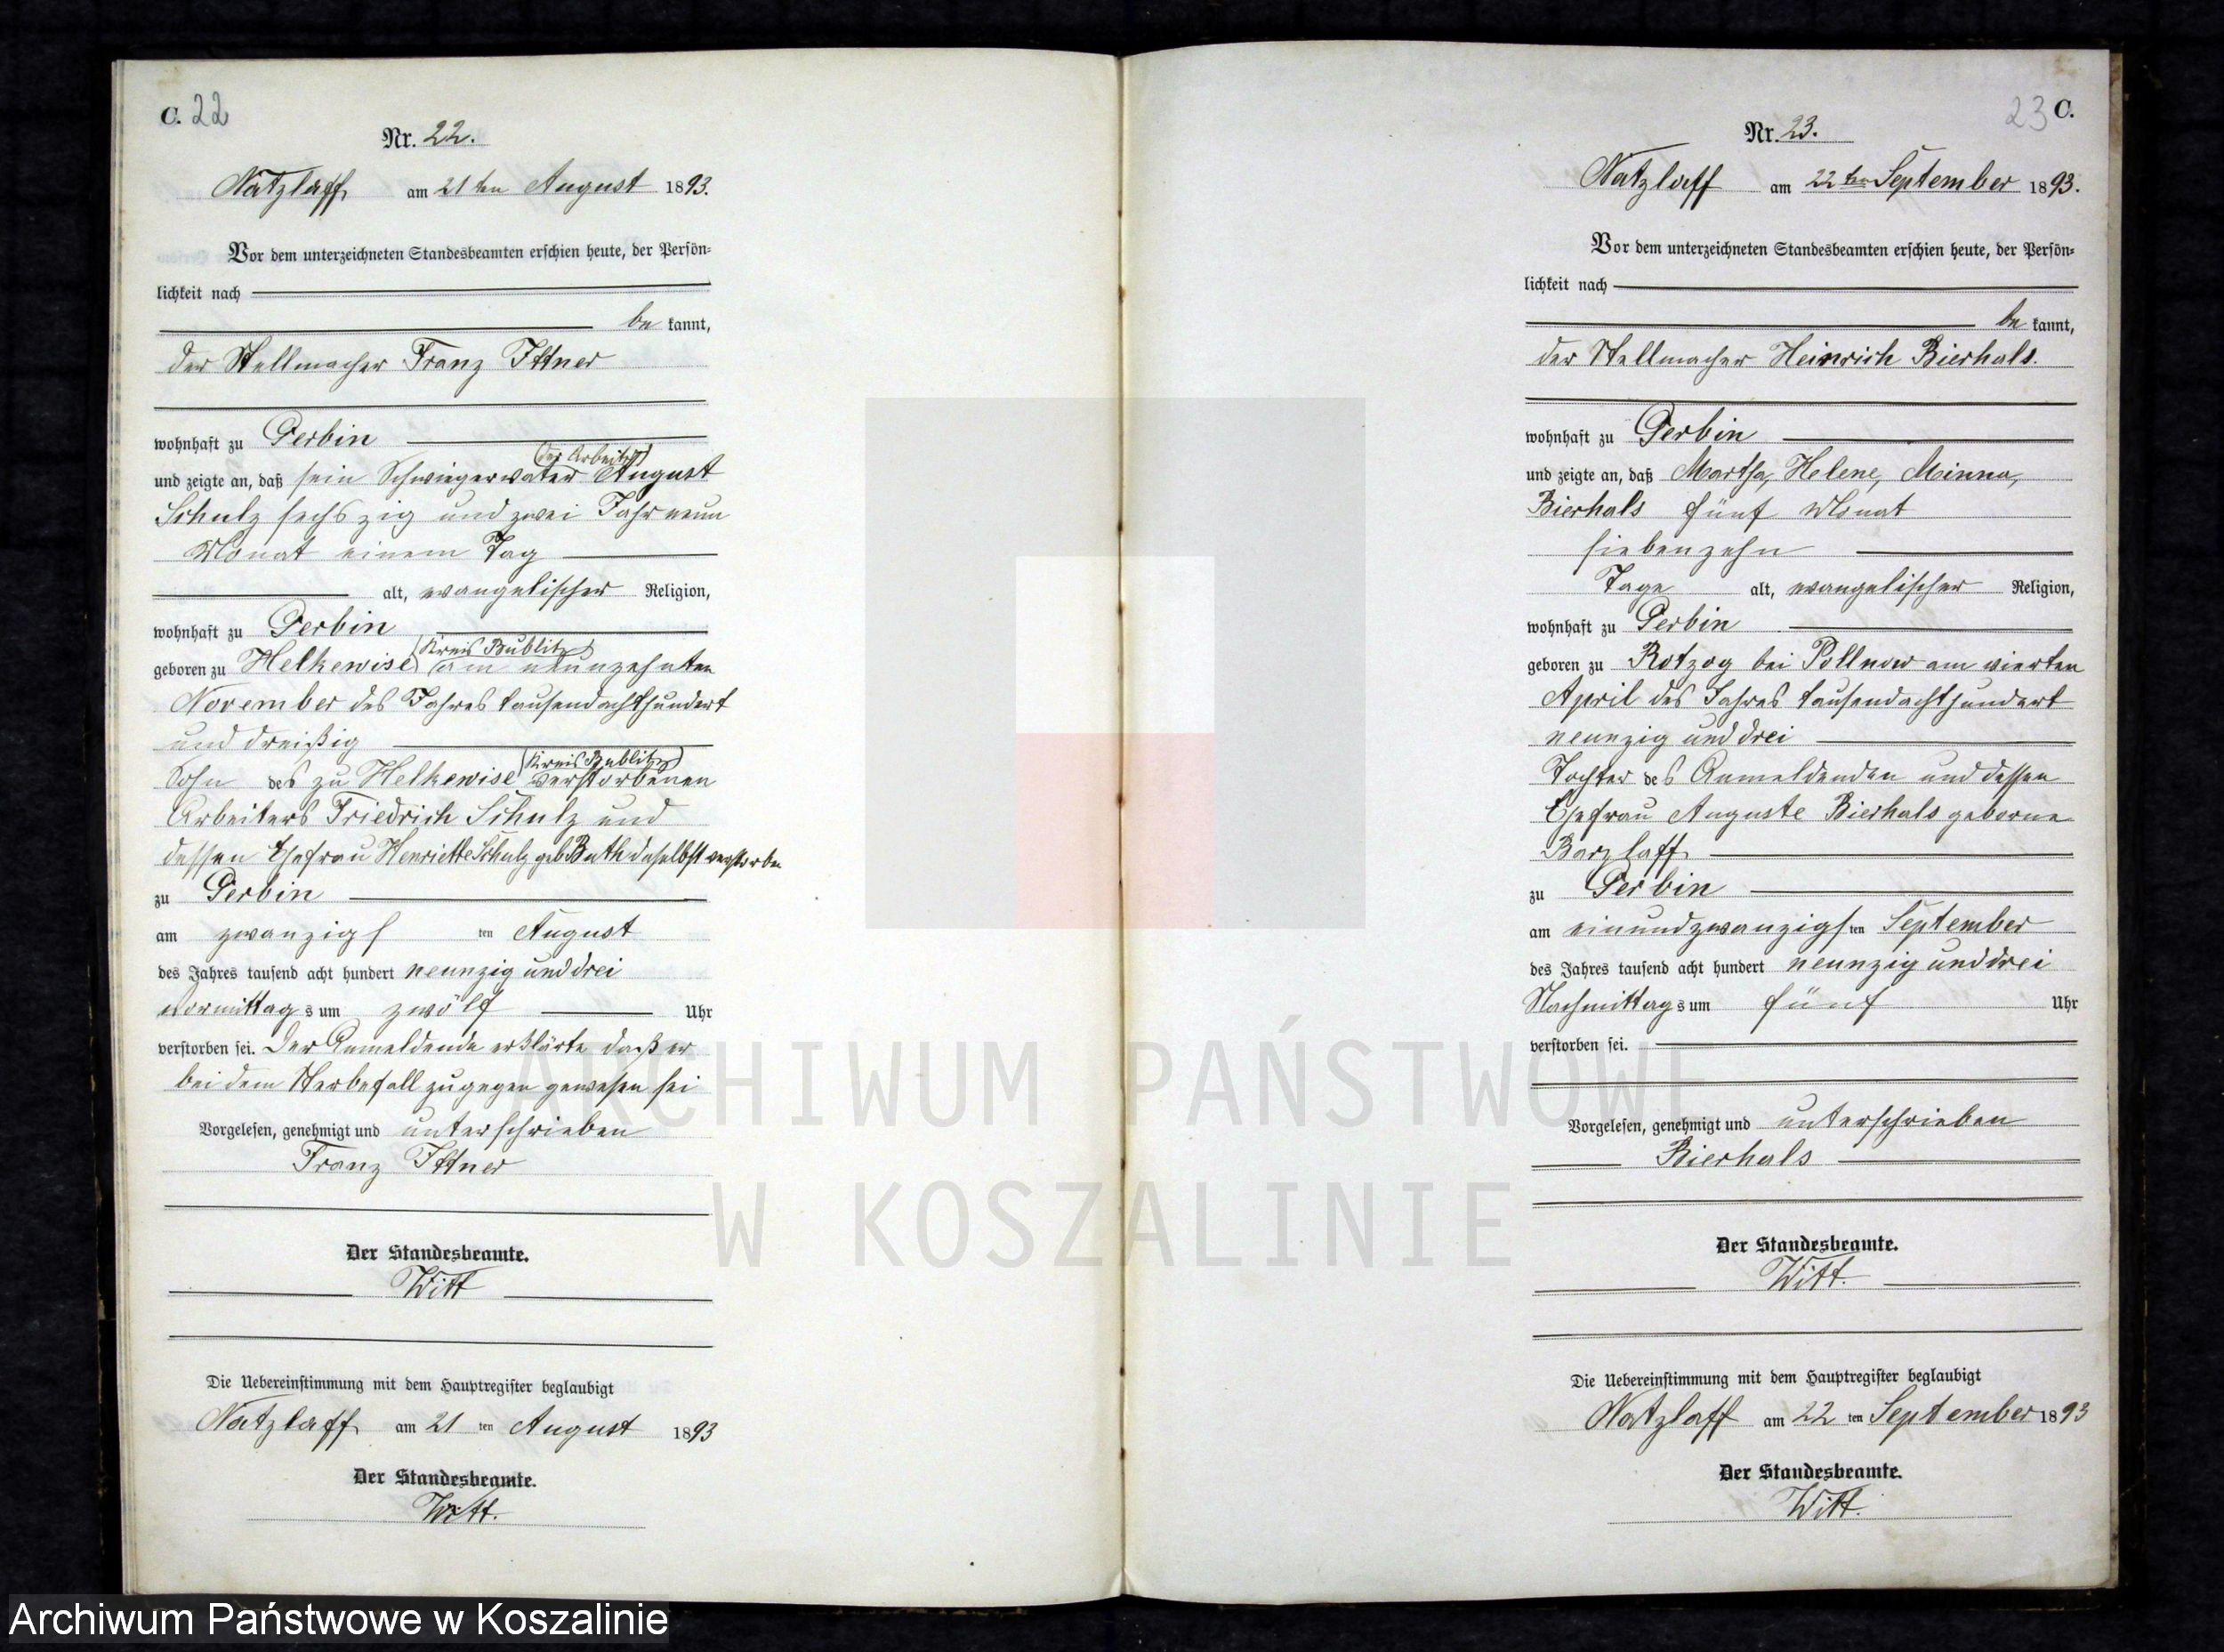 C. 22
Nr. 22.
Natzlaff, am 21ten August 1893.
Vor dem unterzeichneten Standesbeamten erschien heute, der Persön-
lichkeit nach
be kannt,
der Stellmacher Franz Ittner
wohnhaft zu Gerbin
(der Arbeiter)
und zeigte an, daß sein Schwiegervater August
Schulz sechszig und zwei Jahr neun
Monat einem Tag
alt, evangelischer Religion,
wohnhaft zu Gerbin
(Kreis Bublitz)
geboren zu Helkewise am neunzehnten
November des Jahres tausendachthundert
und dreißig
(Kreis Bublitz)
Sohn des zu Helkewise verstorbenen
Arbeiters Friedrich Schulz und
dessen Ehefrau Henriette Schulz geb. Buth daselbst verstorben
zu Gerbin
am zwanzigs ten August
des Jahres tausend acht hundert neunzig und drei
vormittag s um zwölf Uhr
verstorben sei. Der Anmeldende erklärte daß er
bei dem Sterbefall zugegen gewesen sei
Vorgelesen, genehmigt und unterschrieben
Franz Ittner
Der Standesbeamte.
Witt
Die Uebereinstimmung mit dem Hauptregister beglaubigt
Natzlaff, am 21 ten August 1893
Der Standesbeamte.
Witt.
23 C.
Nr. 23.
Natzlaff am 22ten September 1893.
Vor dem unterzeichneten Standesbeamten erschien heute, der Persön-
lichkeit nach
be kannt,
der Stellmacher Heinrich Bierhals.
wohnhaft zu Gerbin
und zeigte an, daß Martha, Helene, Minna,
Bierhals fünf Monat
siebenzehn
Tage alt, evangelischer Religion,
wohnhaft zu Gerbin
geboren zu Rotzog bei Pollnow am vierten
April des Jahres tausendachthundert
neunzig und drei
Tochter des Anmeldenden und dessen
Ehefrau Auguste Bierhals geborne
Barzlaff
zu Gerbin
am einundzwanzigs ten September
des Jahres tausend acht hundert neunzig und drei
Nachmittag s um fünf Uhr
verstorben sei.
Vorgelesen, genehmigt und unterschrieben
Bierhals
Der Standesbeamte.
Witt.
Die Uebereinstimmung mit dem Hauptregister beglaubigt
Natzlaff am 22 ten September 1893
Der Standesbeamte.
Witt.
ARCHIWUM PAŃSTWOWE
W KOSZALINIE
Archiwum Państwowe w Koszalinie